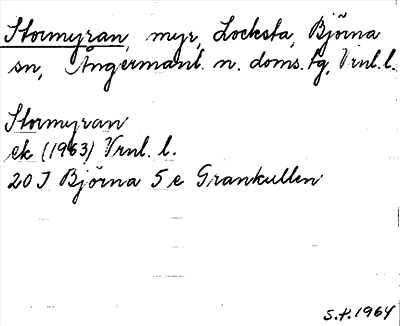 Stormyran, myr, Locksta, Björna
sn, Ångermanl. n. doms. tg, Vrnl. l.
Stormyran
ek (1963) Vrnl. l.
20 I Björna 5 e Grankullen
S.P. 1964